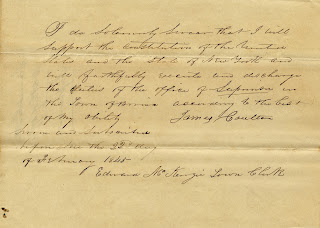 I do Solemnly Swear that I will
support the Constitution of the United
States and the State of New York and
will faithfully execute and discharge
the duties of the office of
in the Town of according to the best
of My ability James Coulter
Sworn and Subscribed
before Me the 22d day
of February 1845
Edward McKenzie Town Clerk